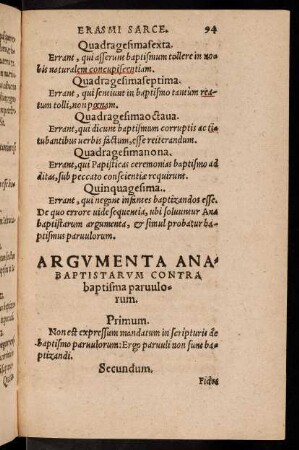 ERASMI SARCE. 94
Quadragesimasexta.
Errant, qui asserunt baptismum tollere in no-
bis noturalem concupiscentiam.
Quadragesimaseptima.
Errant, qui sentiunt in baptismo tantùm rea-
tum tolli, non pœnam.
Quadragesimaoctaua.
Errant, qui dicunt baptismum corruptis ac ti-
tubantibus uerbis factum, esse reiterandum.
Quadragesimanona.
Errant, qui Papisticas ceremonias baptismo ad
ditas, sub peccato conscientiæ requirunt.
Quinquagesima.
Errant, qui negant infantes baptizandos esse.
De quo errore uide sequentia, ubi soluuntur Ana
baptistarum argumenta, & simul probatur ba-
ptismus paruulorum.
ARGVMENTA ANA-
BAPTISTARVM CONTRA
baptisma paruulo-
rum.
Primum.
Non est expressum mandatum in scripturis de
baptismo paruulorum: Ergo paruuli non sunt ba-
ptizandi.
Secundum.